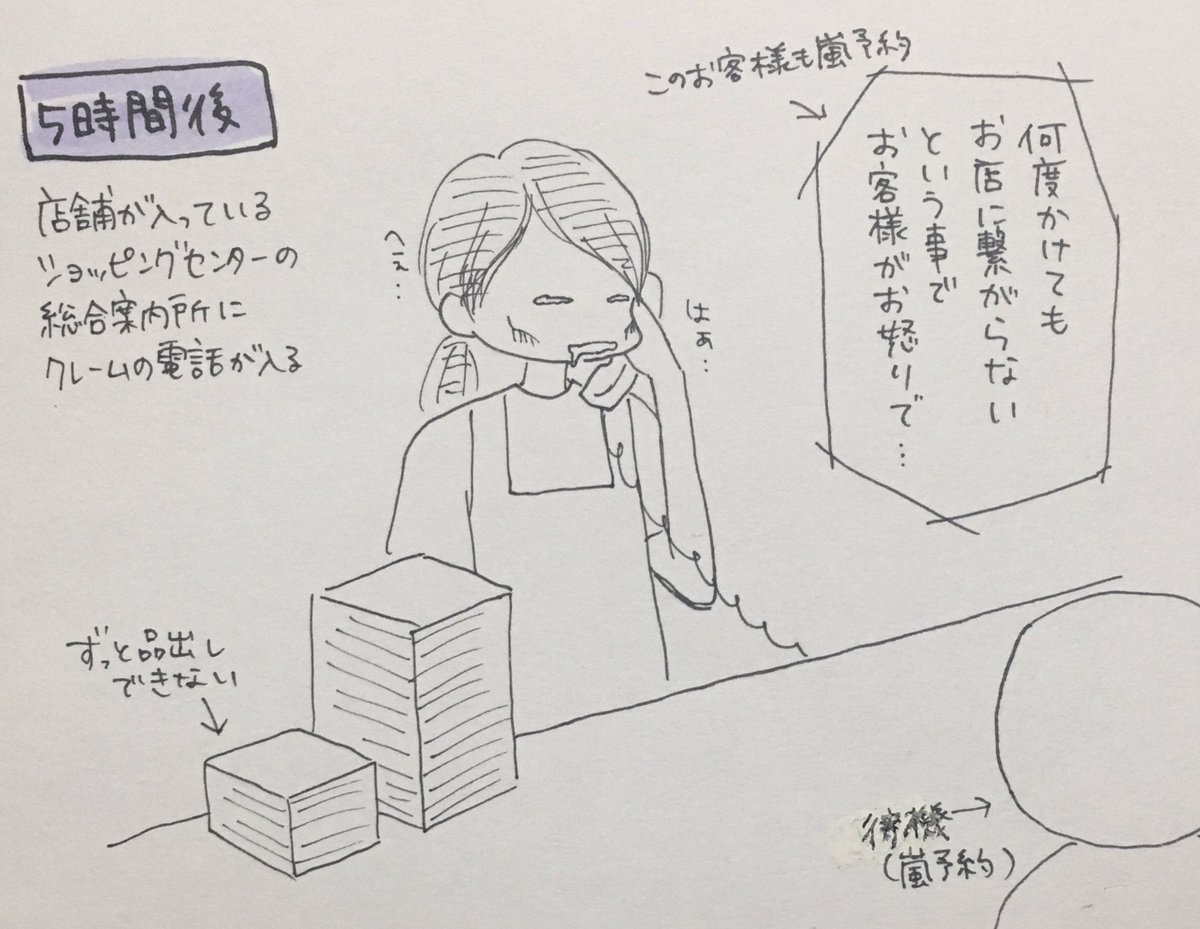 5時間後
店舗が入っている
ショッピングセンターの
総合案内所に
クレームの電話が入る
このお客様も嵐予約
何度かけても
お店に繋がらない
という事で
お客様がお怒りで…
へぇ…
はぁ…
ずっと品出し
できない
待機
(嵐予約)